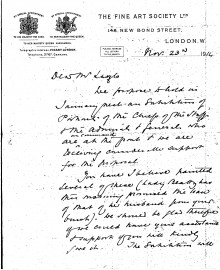 THE FINE ART SOCIETY LTD
148, NEW BOND STREET,
LONDON, W.
Nov. 23rd 1916
Dear Mr
We propose to hold in
January next an Exhibition of
of the Chiefs of the Staff
& the Admirals & Generals who
are at the front & we are
receiving considerable support
for the proposal
You have I believe painted
several of these (Lady Beatty has
this morning promised the loan
of that of her husband from your
brush). We should be glad therefore
if we could have your assistance
& support if you will kindly
give it. The Exhibition will